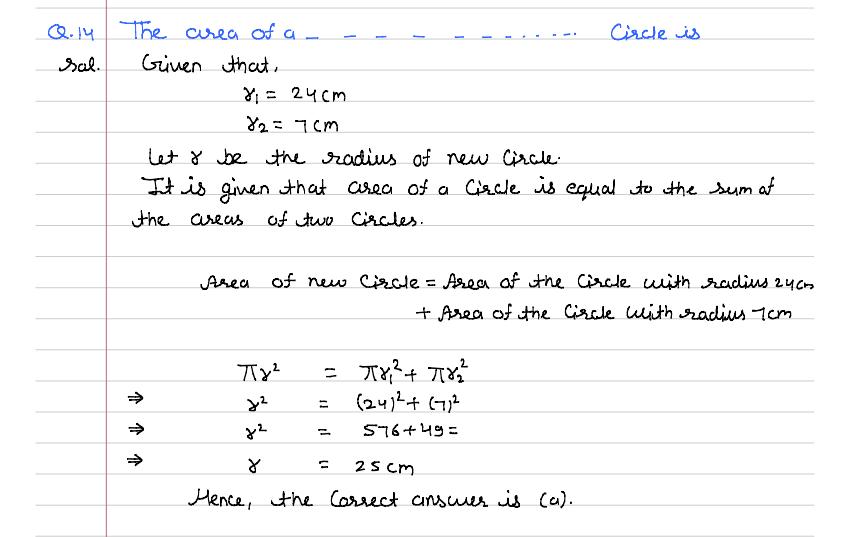 Q.14 The area of a _ _ _ _ _ _ _ ...... Circle is
Sol. Given that,
r₁ = 24cm
r₂ = 7cm
Let r be the radius of new Circle.
It is given that area of a Circle is equal to the sum of
the areas of two Circles.
Area of new Circle = Area of the Circle with radius 24cm
+ Area of the Circle with radius 7cm
πr² = πr₁² + πr₂²
⇒ r² = (24)² + (7)²
⇒ r² = 576+49=
⇒ r = 25cm
Hence, the Correct answer is (a).